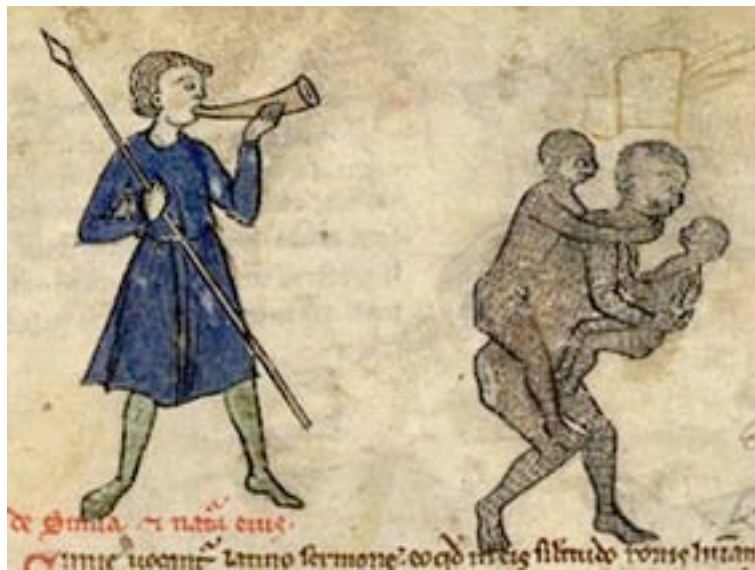 de Simia ⁊ nat̃ eius.
Simie uocant᷑ latino sermone. eo qd̃ in eis silitudo rõnis hũan